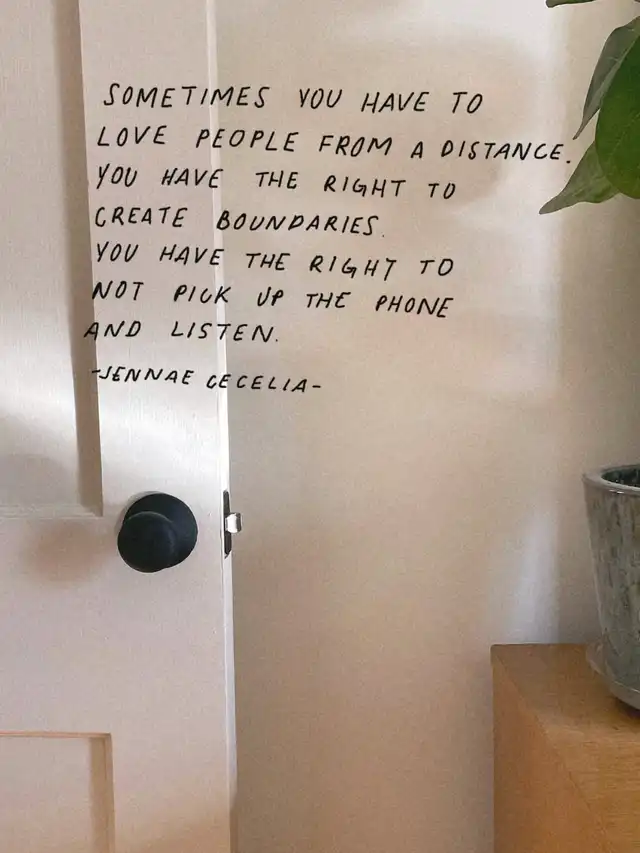 SOMETIMES YOU HAVE TO
LOVE PEOPLE FROM A DISTANCE.
YOU HAVE THE RIGHT TO
CREATE BOUNDARIES.
YOU HAVE THE RIGHT TO
NOT PICK UP THE PHONE
AND LISTEN.
-JENNAE CECELIA-